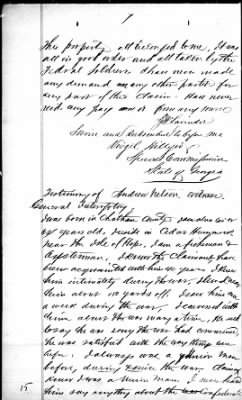 This property all belonged to me. It was
all in good order and all taken by the
Federal Soldiers. I have never made
any demand on any other parties for
any part of this claim. Has never
recd. any pay one or from any source
Sworn and Subscribed to before me
Virgil Hillyer
Special Commissioner
State of Georgia
Testimony of Andrew Nelson witness
General Interrogatory
I was born in Chatham County
years old. I reside in Cedar Hammock
near the Isle of Hope. I am a fisherman &
Oysterman. I know the Claimant, have
been acquainted with him 40 years. I knew
him intimately during the war, lived near
him about
a week during the war. I conversed with
him about the war many a time. He said
to say he was sorry the war had commenced
he was satisfied with the way things were
before. I always was a Union man
before, during & since the war. Claimant
knew I was a Union man. I never heard
him say anything about the Confederate
15